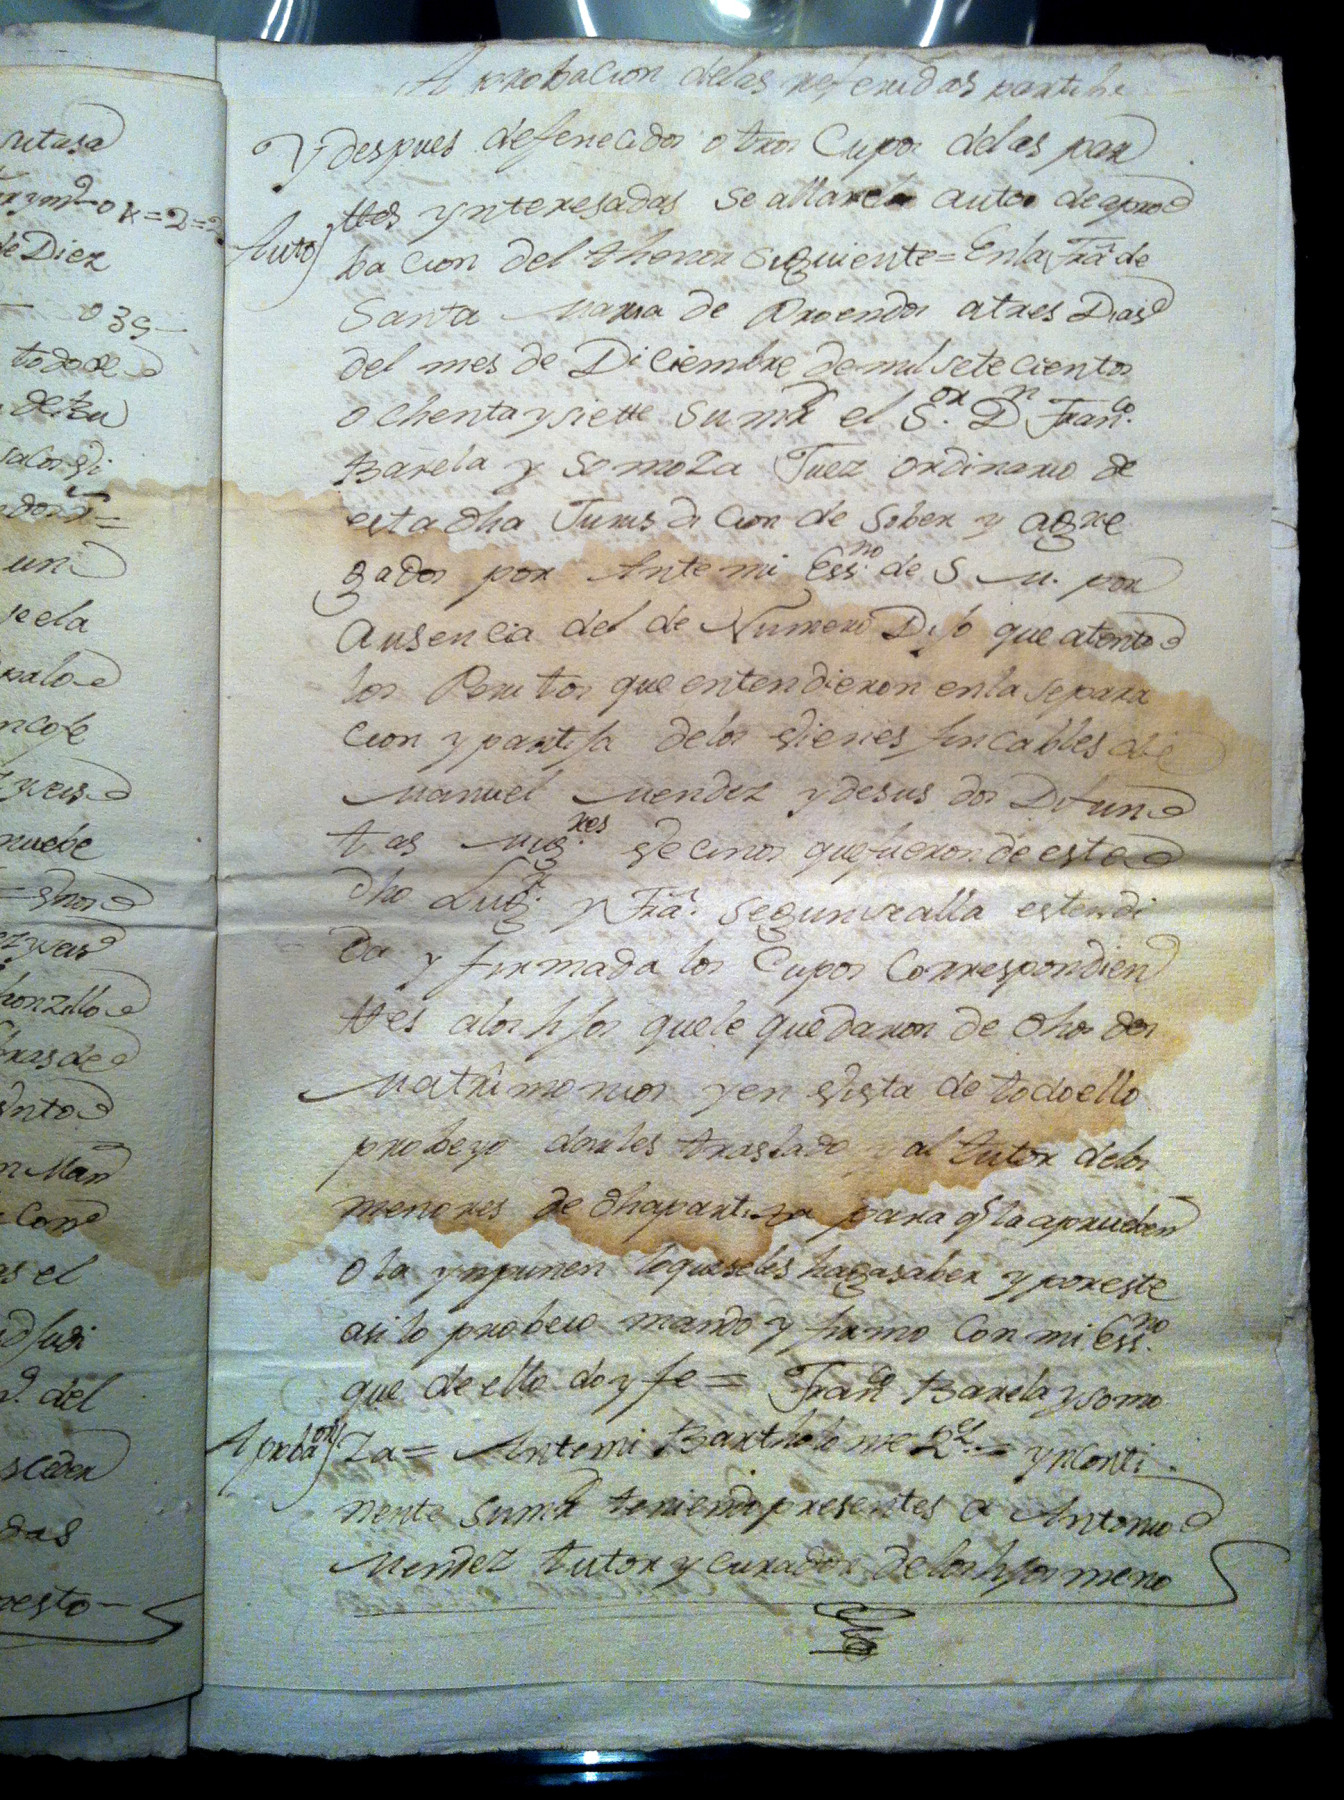 Aprobacion delas referidas partihas
Y despues defenecidos otros Cupos delas par
ttes ynteresadas se allarela autto de apro
Auto) bacion del thenor siguiente = En la Fra de
Santa Maria de Proendos atres Dias
del mes de Diciembre de mil setecientos
ochenta y siette Sumrd el S.or Dn Fran.co
Barela y Somoza Juez ordinario de
esta dha Jurisdicion de Sober y agre
gados por Ante mi Ess.no de S M. por
Ausencia del de Numero Dijo que atento
los Peritos que entendieron enla separa
cion y partija delos Vienes fincables de
Manuel Mendez y desus dos Difun
tas Mug.res Vecinos que fueron de este
dho Lug.r y Fra. segun se alla estendi
da y firmada los Cupos Correspondien
ttes alos hijos quele quedaron de dhos dos
Matrimonios y en Vista de todo ello
probeyo darles traslado y al tutor delos
menores de dha partiza para q.e la aprueben
o la ynpunen loqueseles hagasaber y poreste
asi lo probeio mando y firmo Con mi Ess.no
que de ello doy fe = Fran.co Barela y Somo
Aprobaon) za = Antemi Bartholome = yncontti
nente Sumrd teniendo presentes a Antonio
Mendez tutor y curador delos hijos meno
rutasa
de Diez
039
todo de
un
se ela
nuebe
Man
Con
as el
del
das